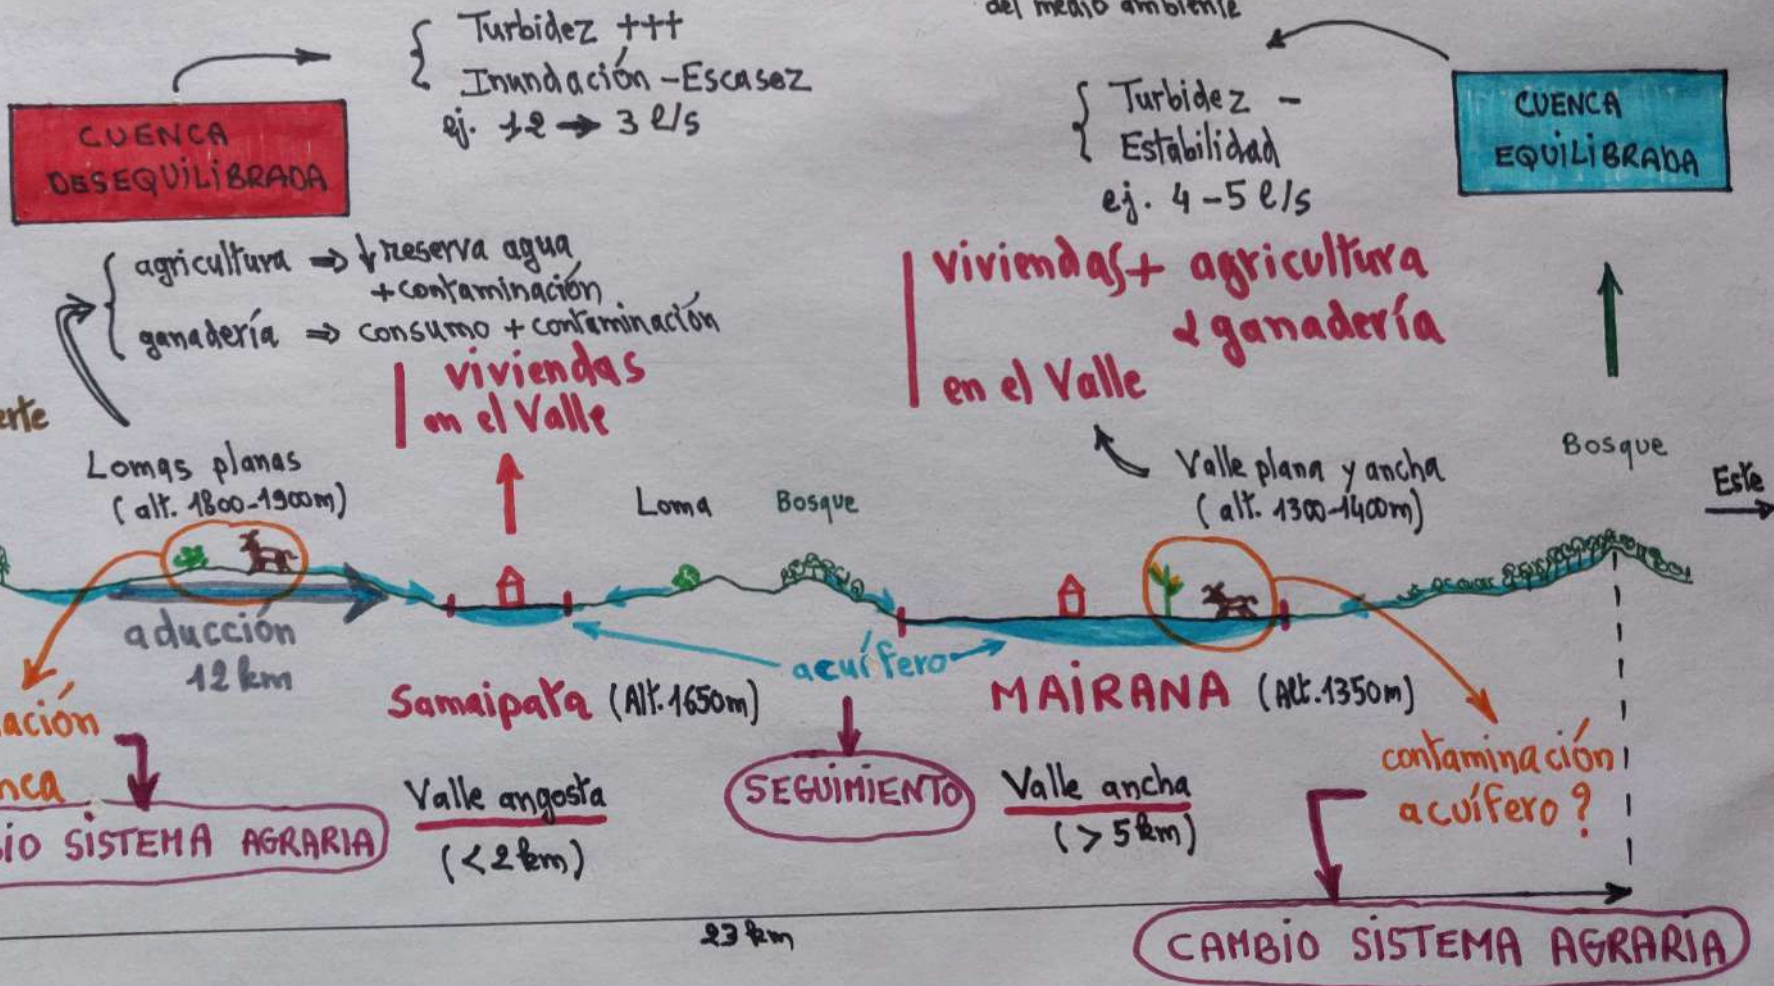 del medio ambiente
Turbidez +++
Inundación - Escasez
ej. 12 → 3 l/s
CUENCA
DESEQUILIBRADA
Turbidez -
Estabilidad
ej. 4-5 l/s
CUENCA
EQUILIBRADA
agricultura ⇒ ↓ reserva agua
+ contaminación
ganadería ⇒ consumo + contaminación
viviendas
en el Valle
viviendas + agricultura
& ganadería
en el Valle
erte
Lomas planas
(alt. 1800-1900m)
Loma
Bosque
Valle plana y ancha
(alt. 1300-1400m)
Bosque
Este
aducción
12 km
acuífero
Samaipata (Alt. 1650m)
MAIRANA (Alt. 1350m)
ación
nca
contaminación
acuífero?
Valle angosta
(< 2 km)
SEGUIMIENTO
Valle ancha
(> 5 km)
IO SISTEMA AGRARIA
23 km
CAMBIO SISTEMA AGRARIA